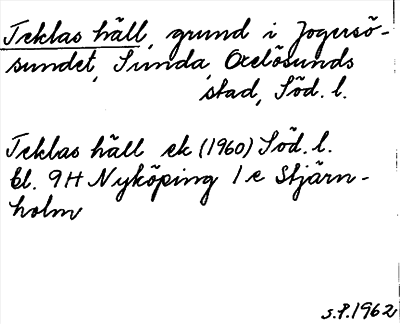 Teklas häll, grund i Jogersö-
sundet, Sunda, Oxelösunds
stad, Söd. l.
Teklas häll ek (1960) Söd. l.
bl. 9H Nyköping 1 e Stjärn-
holm
S.P. 1962